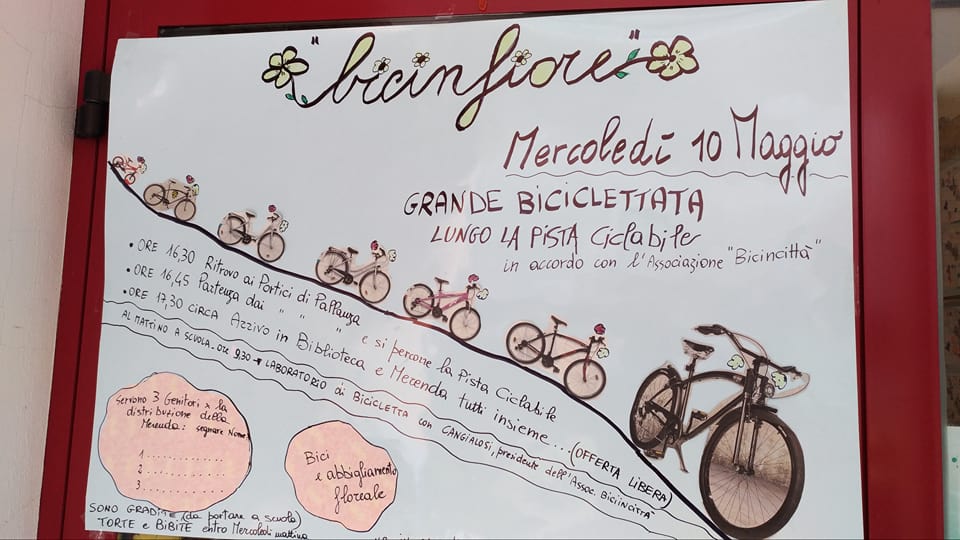 "bicinfiore"
Mercoledì 10 Maggio
GRANDE BICICLETTATA
LUNGO LA PISTA Ciclabile
in accordo con l'Associazione "Bicincittà"
• ORE 16,30 Ritrovo ai Portici di Pallanza
• ORE 16,45 Partenza dai " " " e si percorre la Pista Ciclabile
• ORE 17,30 CIRCA Arrivo in Biblioteca e Merenda tutti insieme... (OFFERTA LIBERA)
AL MATTINO A SCUOLA - ORE 9.30 → LABORATORIO di BICICLETTA con CANGIALOSI, presidente dell'Assoc. Bicincittà
Servono 3 Genitori x la
distribuzione della
Merenda: segnare Nome:
1 ..............
2 ..............
3 ..............
Bici
e abbigliamento
floreale
SONO GRADITE (da portare a scuola)
TORTE e BIBITE entro Mercoledì mattina